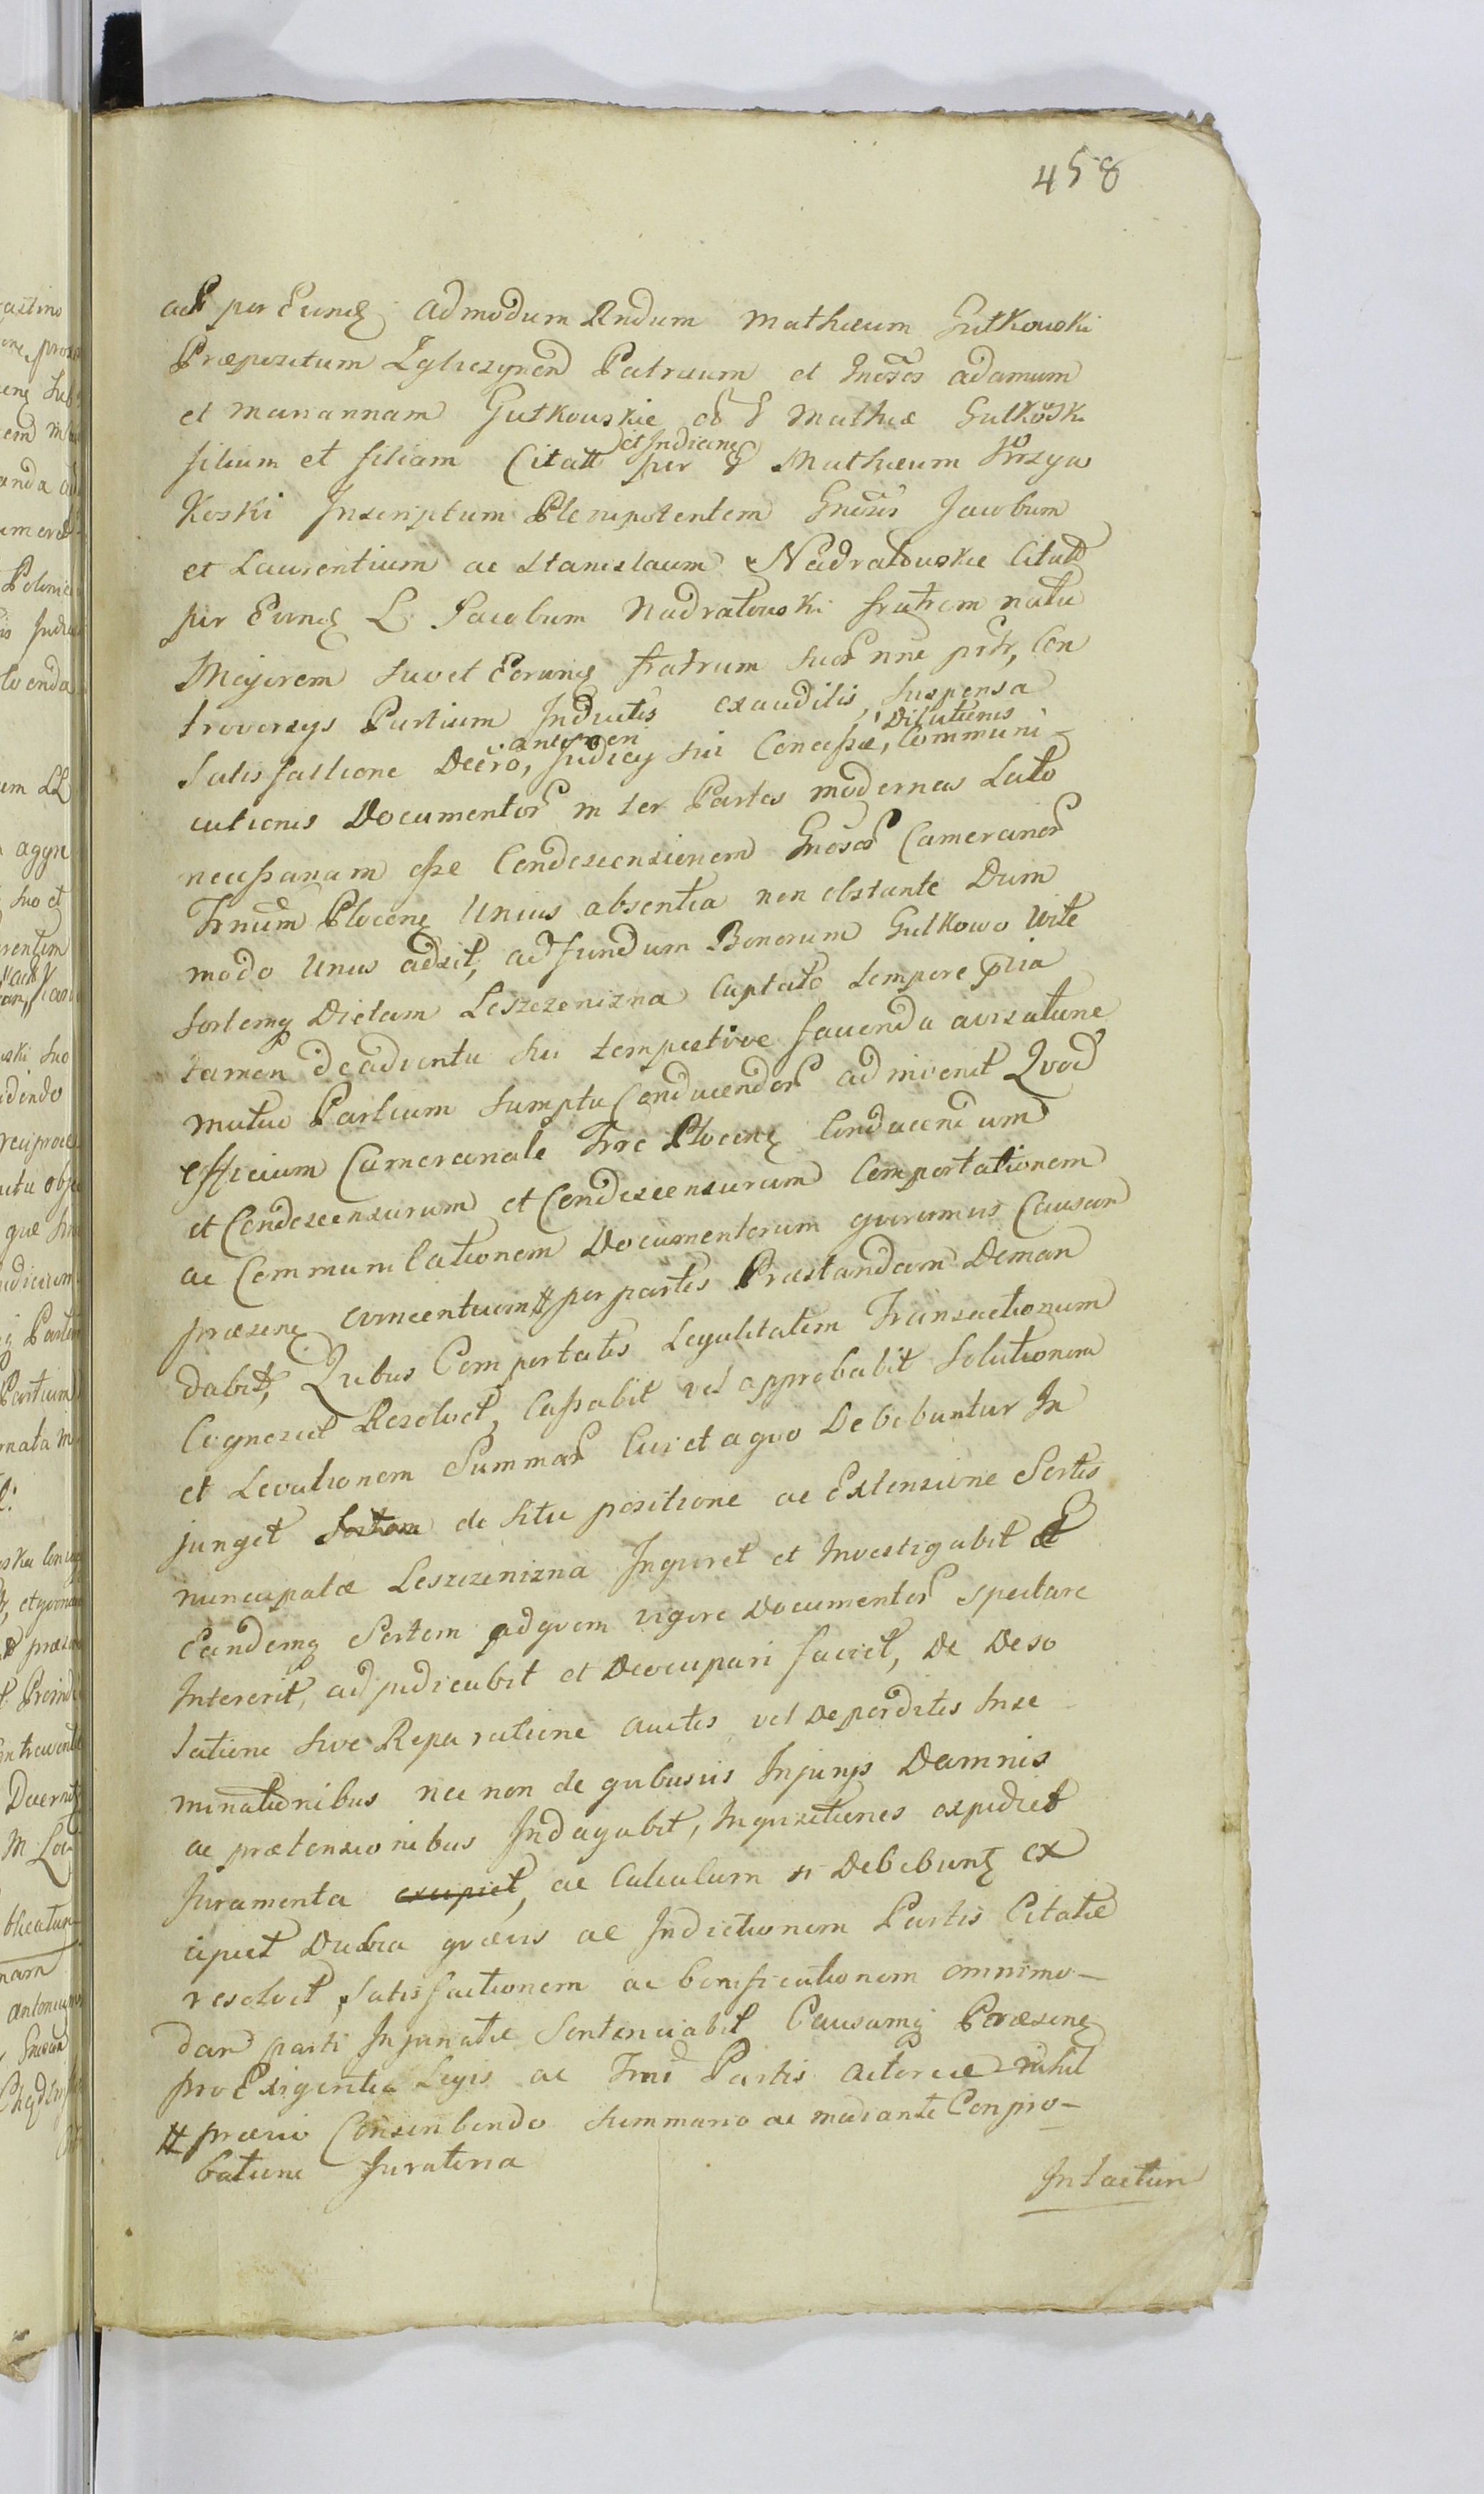 458
act per Eundq admodum Rndum Mathæum Gutkowski
Præpositum Patruum et Gnosos Adamum
et Mariannam Gutkowskie ol G Mathiæ Gutkowski
filium et filiam Citatt et Indicen per G Mathæum Przzyw
Koski Inscriptum Plenipotentem Gnosos Jacobum
et Laurentium ac Stanislaum Nadratowskie Citatt
per Eundq G Jacobum Nadratowski fratrem natu
Majorem suo et Eorundq fratrum suor nne prtr, Con
troversys Partium Inductis exauditis, suspensa
Satisfactione Decro, anteriori Judicy sui Concessæ, Dilationis Communi-
cationis Documentor inter Partes modernas Lato
necessariam esse Condescensionem Gnosor Camerarior
Trnum Plocenq Unius absentia non obstante Dum
modo Unus adsit, ad fundum Bonorum Gutkowo Wite
sortemq Dictam Leszczenizna Captato tempore pria
tamen de adventu sui tempestive facienda avisatione
mutuo Partium sumptu Conducendor adinvenit Quod
officium Camerariale Trre Plocenq Conducendum
et Condescensurum et Condescensurum Comportationem
ac Communicationem Documentorum quorumvis Causam
præsenq concernentium # per partes Præstandam Deman
dabit, Quibus Comportatis Legalitatem Transactionum
Cognoscet Resolvet, Cassabit vel approbabit Solutionem
et Levationem Summar Cui et a quo Debebuntur In
junget de situ positione ac Extensione Sortis
nuncupatæ Leszczenizna Inquiret et Investigabit et
Eandemq Sortem ad quem vigore Documentor spectare
Intererit, adjudicabit et Deoccupari faciet, De Deso
latione sive Reparatione auctis vel Deperditis Inse
minationibus nec non de quibusvis Injurys Damnis
ac prætensionibus Indagabit, Inquisitiones expediet
Juramenta excipiet, ac Calculum si Debebuntq ex
cipiet Dubia quævis ac Indictionem Partis Citatæ
resolvet, Satisfactionem ac bonificationem omnimo-
dam parti Injuriatæ Sentenciabit Causamq Præsenq
pro Exigentia Legis ac Trmi Partis Actoreæ nihil
# prævio Conscribendo Summario ac mediante Conpro-
batione Juratoria
Intactum